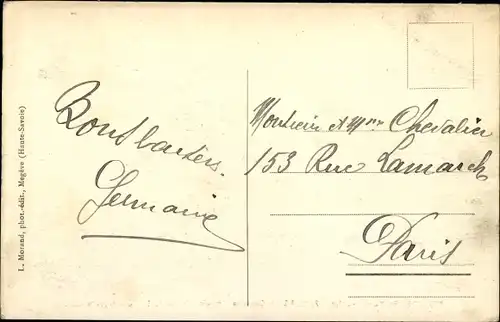 L. Morand, phot.-édit., Megève (Haute-Savoie)
Bons baisers.
Germaine
Monsieur et Mme Chevalier
153 Rue Lamarck
Paris